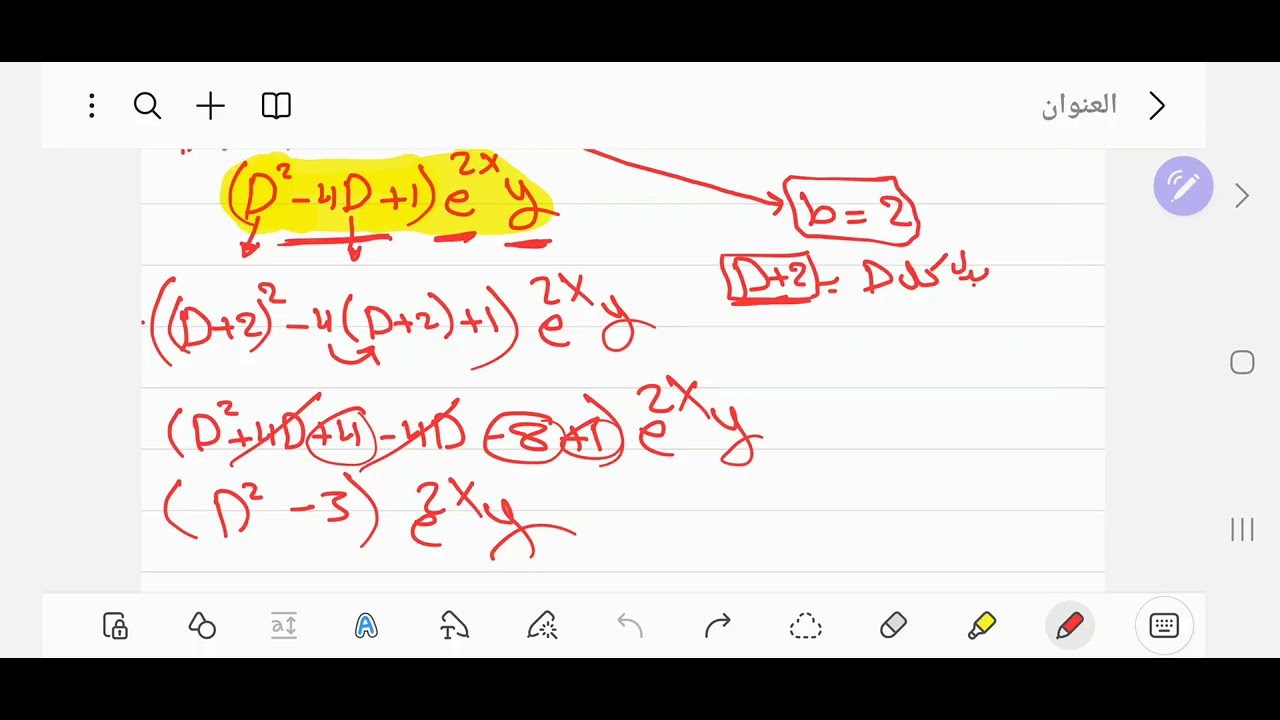 العنوان
(D² -4D +1) e^2x y
b = 2
بدل كل D = D+2
((D+2)² -4(D+2)+1) e^2x y
(D² +4D +4 -4D -8 +1) e^2x y
(D² -3) e^2x y